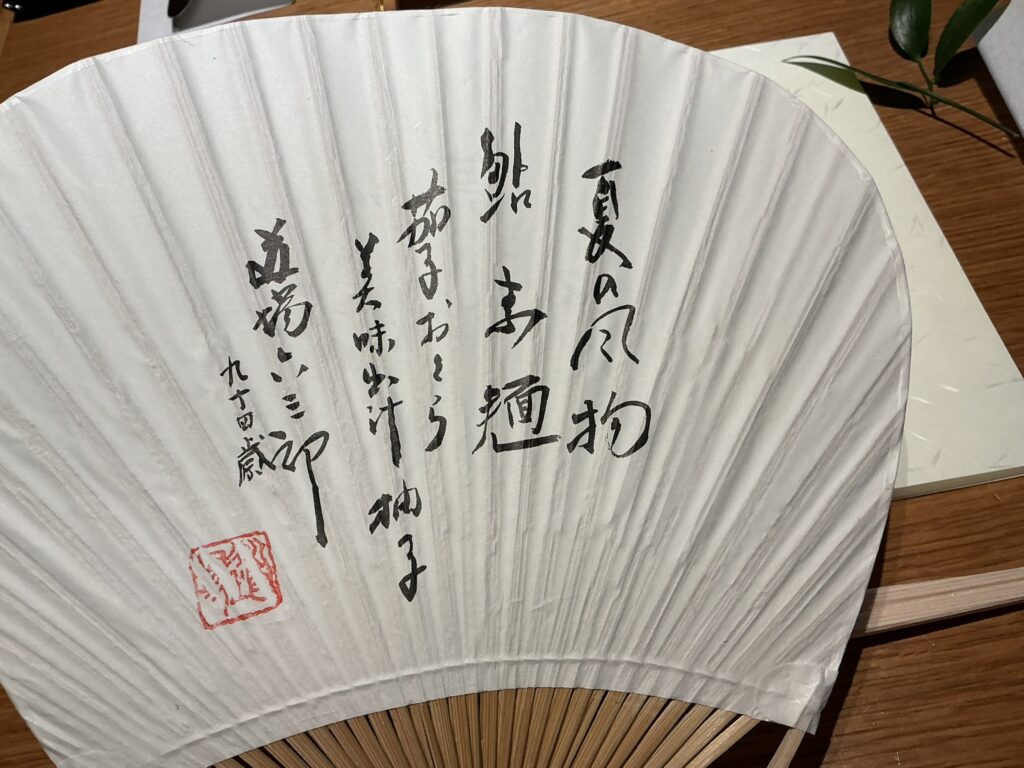 夏の風物
鮎素麺
茄子おくら
美味出汁 柚子
道場六三郎
九十四歳